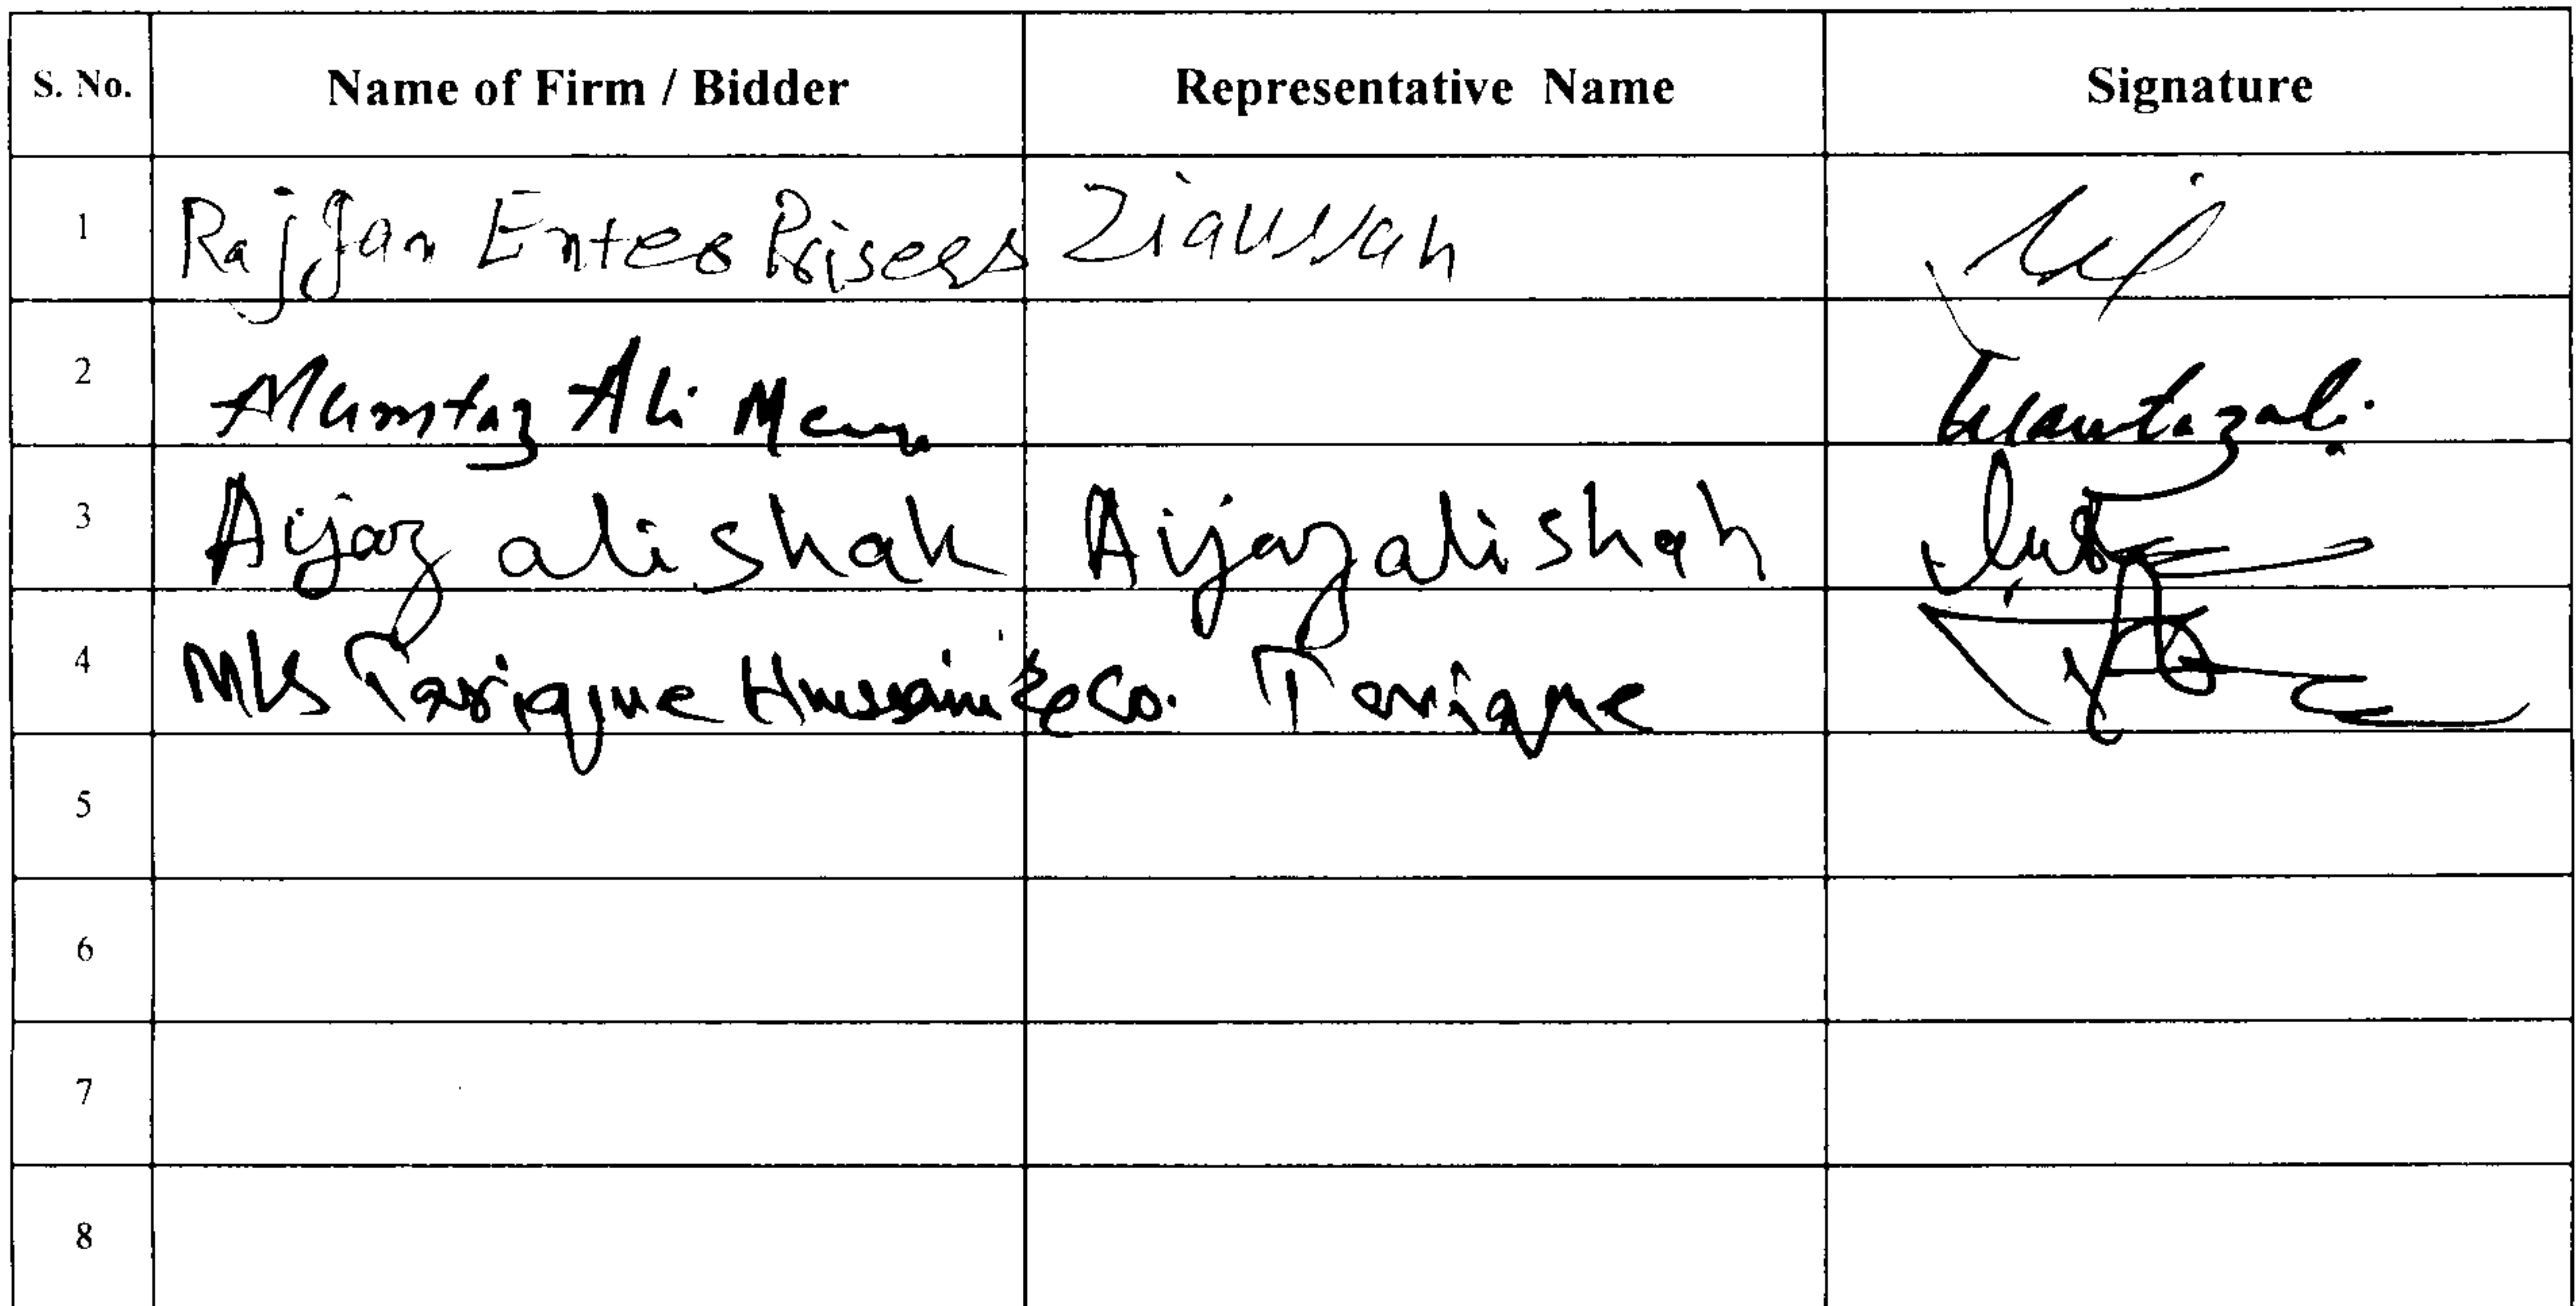 S. No. Name of Firm / Bidder Representative Name Signature
1 Raj Jan Enter Prisers Ziaullah
2 Mumtaz Ali Mumtazali
3 Aijaz ali shah Aijaz ali shah
4 M/s Tarique Hussain & Co. Tarique
5
6
7
8